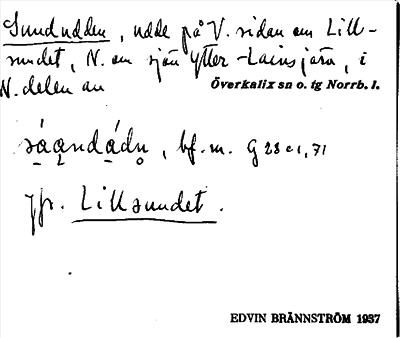 Sundudden, udde på V. sidan om Lill-
sundet, N. om sjön Ytter-Lainejärv, i
N. delen av Överkalix sn o. tg Norrb. l.
sá̱a̱ndá̱dn̥, bf. m. G 28 c 1, 71
Jfr. Lillsundet.
EDVIN BRÄNNSTRÖM 1937